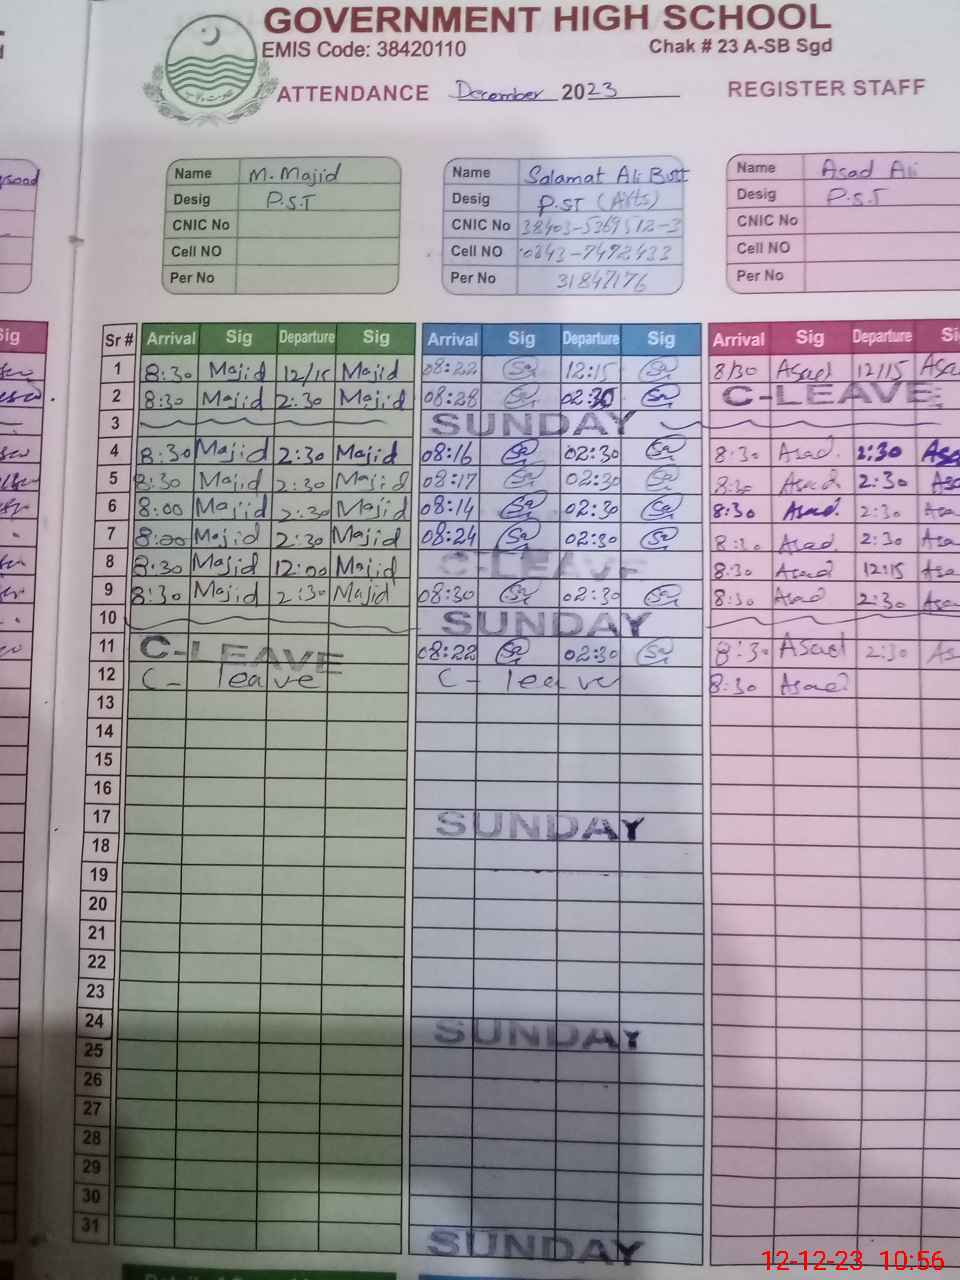 GOVERNMENT HIGH SCHOOL
EMIS Code: 38420110 Chak # 23 A-SB Sgd
ATTENDANCE December 2023 REGISTER STAFF
Name M. Majid Name Salamat Ali Butt Name Asad Ali
Desig P.S.T Desig P.ST (Arts) Desig P.S.T
CNIC No CNIC No 38403-5369512-3 CNIC No
Cell NO Cell NO 0343-7492433 Cell NO
Per No Per No 31847176 Per No
Sig Sr # Arrival Sig Departure Sig Arrival Sig Departure Sig Arrival Sig Departure
1 8:30 Majid 12/15 Majid 08:22 12:15 8/30 Asad 12/15
2 8:30 Majid 2:30 Majid 08:28 02:30 C-LEAVE
3 SUNDAY
4 8:30 Majid 2:30 Majid 08:16 02:30 8:30 Asad 2:30
5 8:30 Majid 2:30 Majid 08:17 02:30 8:30 Asad 2:30
6 8:00 Majid 2:30 Majid 08:14 02:30 8:30 Asad 2:30
7 8:00 Majid 2:30 Majid 08:24 02:30 8:30 Asad 2:30
8 8:30 Majid 12:00 Majid C-LEAVE 8:30 Asad 12:15
9 8:30 Majid 2:30 Majid 08:30 02:30 8:30 Asad 2:30
10 SUNDAY
11 C-LEAVE 08:22 02:30 8:30 Asad 2:30
12 C- leave C- leave 8:30 Asad
13
14
15
16
17 SUNDAY
18
19
20
21
22
23
24 SUNDAY
25
26
27
28
29
30
31 SUNDAY
12-12-23 10:56